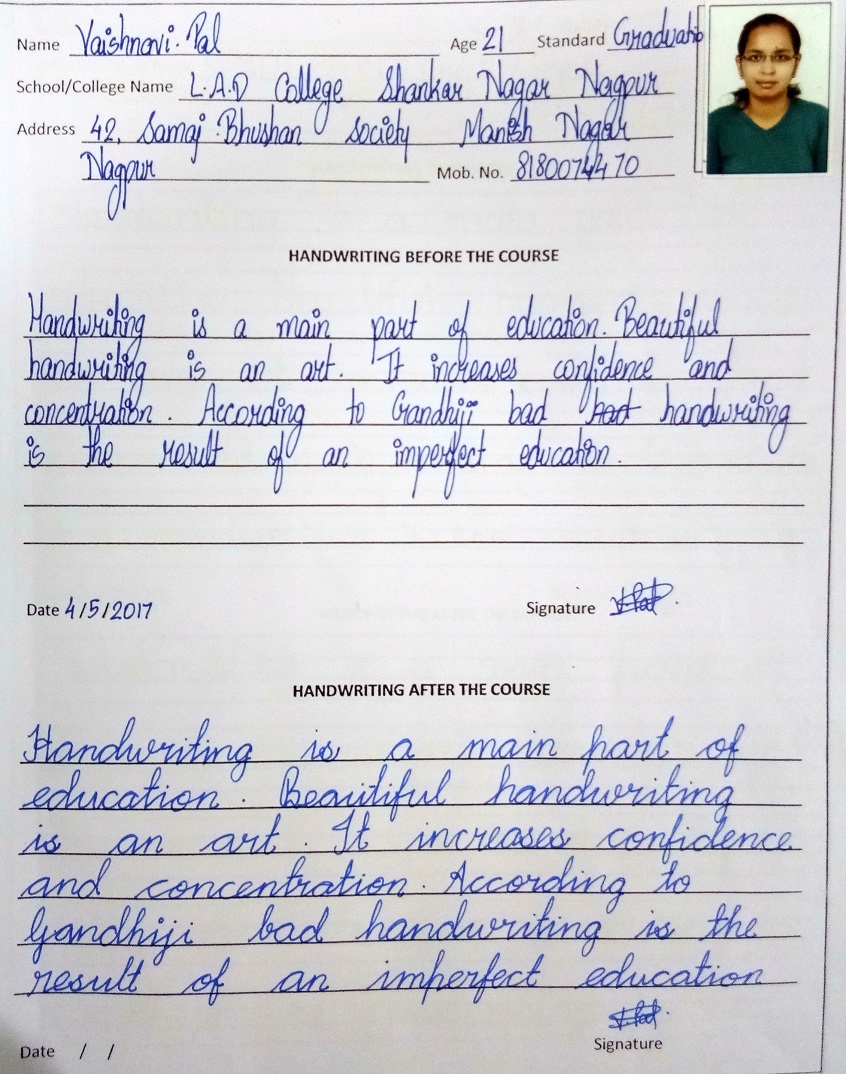 Name Vaishnavi. Pal Age 21 Standard Graduatio
School/College Name L.A.D College Shankar Nagar Nagpur
Address 42, Samaj Bhushan society Manish Nagar
Nagpur Mob. No. 8180074470
HANDWRITING BEFORE THE COURSE
Handwriting is a main part of education. Beautiful
handwriting is an art. It increases confidence and
concentration. According to Gandhiji bad handwriting
is the result of an imperfect education.
Date 4/5/2017 Signature
HANDWRITING AFTER THE COURSE
Handwriting is a main part of
education. Beautiful handwriting
is an art. It increases confidence
and concentration. According to
Gandhiji bad handwriting is the
result of an imperfect education
Signature
Date / /